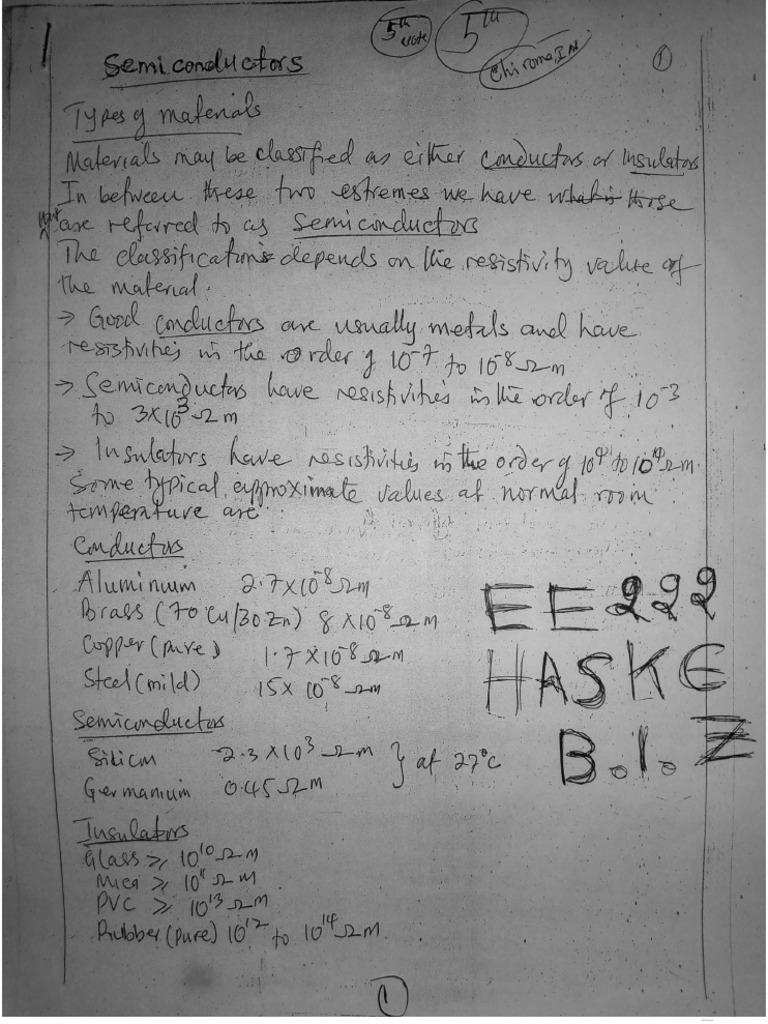 1
5th note
5th
Chiroma, I.N
1
Semiconductors
Types of materials
Materials may be classified as either conductors or insulators
In between these two extremes we have what is those
are referred to as semiconductors
The classifications depends on the resistivity value of
the material.
→ Good conductors are usually metals and have
resistivities in the order of 10⁻⁷ to 10⁻⁸ Ωm
→ Semiconductors have resistivities in the order of 10⁻³
to 3×10³ Ωm
→ Insulators have resistivities in the order of 10⁴ to 10¹⁴ Ωm.
Some typical approximate values at normal room
temperature are:
Conductors
Aluminium 2.7×10⁻⁸ Ωm
Brass (70 Cu/30 Zn) 8×10⁻⁸ Ωm
Copper (pure) 1.7×10⁻⁸ Ωm
Steel (mild) 15×10⁻⁸ Ωm
Semiconductors
Silicon 2.3×10³ Ωm } at 27°C
Germanium 0.45 Ωm
Insulators
Glass ≥ 10¹⁰ Ωm
Mica ≥ 10¹¹ Ωm
PVC ≥ 10¹³ Ωm
Rubber (pure) 10¹² to 10¹⁴ Ωm.
EE222
HASKE
B.I.Z
1